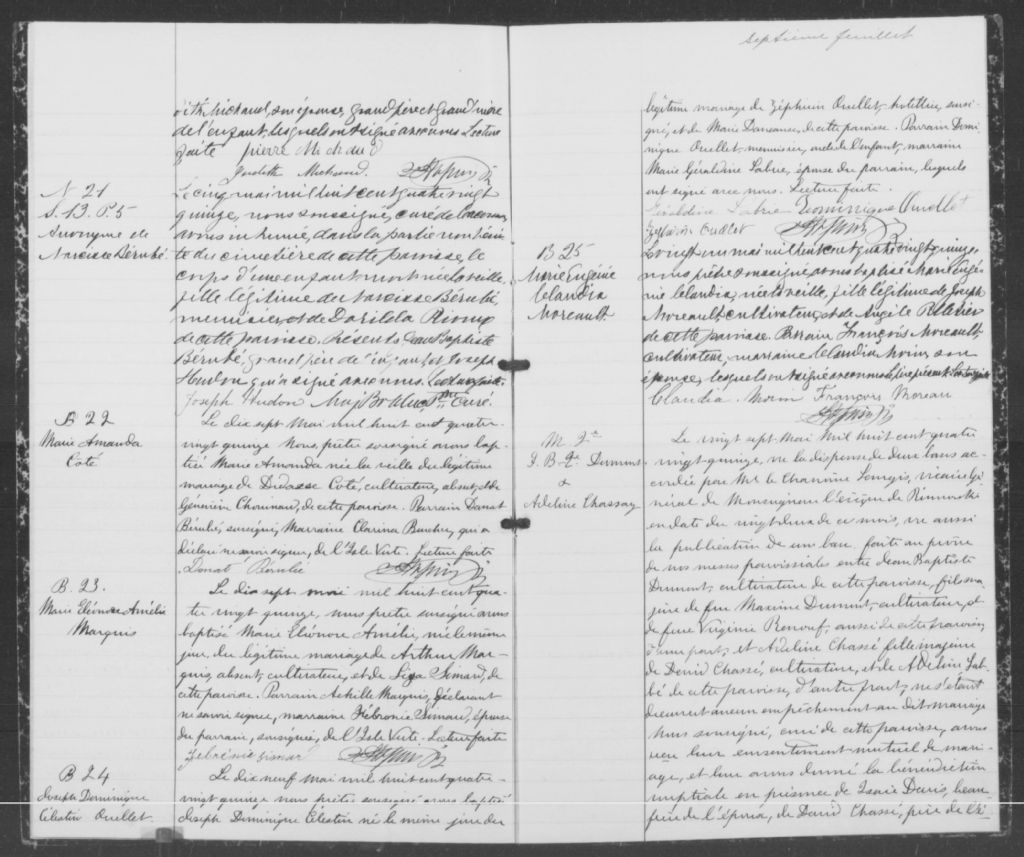 dith Michaud, son épouse, grand'père et grand'mère
de l'enfant, lesquels ont signé avec nous. Lecture
faite pierre Michaud
Judith Michaud.
N 21
S. 13. P. 5
Anonyme de
Narcisse Bérubé
Le cinq mai mil huit cent quatre vingt
quinze, nous soussigné, curé de
avons inhumé, dans la partie non bénie
te du cimetière de cette paroisse, le
corps d'un enfant mort née la veille
fille légitime de Narcisse Bérubé,
menuisier, et de Dorilda Rioux
de cette paroisse. Présents Jean Baptiste
Bérubé, grand père de l'enfant et Joseph
Hudon qui a signé avec nous. Lecture faite.
Joseph Hudon Ptre Curé.
B 22
Marie Amanda
Coté
Le dix sept Mai mil huit cent quatre
vingt quinze Nous, prêtre soussigné avons bap-
tisé Marie Amanda née la veille du légitime
mariage de Didasse Coté, cultivateur, absent, et de
Geneviève Chouinard, de cette paroisse. Parrain Donat
Bérubé, soussigné, Marraine Clarina Boucher, qui a
déclaré ne savoir signer, de l'Isle Verte. Lecture faite
Donat Bérubé
B. 23.
Marie Eléonore Amélie
Marquis
Le dix sept mai mil huit cent qua-
tre vingt quinze, nous prêtre soussigné avons
baptisé Marie Eléonore Amélie, née le même
jour, du légitime mariage de Arthur Mar-
quis, absent, cultivateur, et de Liza Simard, de
cette paroisse. Parrain Achille Marquis, déclarant
ne savoir signer, marraine Fébronie Simard, épouse
du parrain, soussignée, de l'Isle Verte. Lecture faite
Febronie Simard
B 24
Joseph Dominique
Célestin Ouellet
Le dix neuf Mai mil huit cent quatre-
vingt quinze nous prêtre soussigné avons baptisé
Joseph Dominique Célestin né le même jour du
septième feuillet
légitime mariage de Zéphirin Ouellet, hotellier, soussi-
gné, et de Marie Damase, de cette paroisse. Parrain Domi-
nique Ouellet, menuisier, oncle de l'enfant, marraine
Marie Géraldine Labrie, épouse du parrain, lesquels
ont signé avec nous. Lecture faite.
Géraldine Labrie Dominique Ouellet
Zephirin Ouellet
B 25
Marie Eugénie
Claudia
Moreault
Le vingt un mai mil huit cent quatre vingt quinze,
nous prêtre soussigné avons baptisé Marie Eugé
nie Claudia, née la veille, fille légitime de Joseph
Moreault, cultivateur, et de Angèle Pelletier
de cette paroisse. Parrain François Moreault,
cultivateur, marraine Claudia Morin, son
épouse, lesquels ont signé avec nous
Claudia Morin François Moreau
M 2e
J. B. Dumont
&
Adeline Chassay
Le vingt sept Mai Mil huit cent quatre
vingt quinze, vu la dispense de deux bans ac-
cordée par Mr le Chanoine Langis, vicaire Gé
néral de Monseigneur l'évêque de Rimouski
en date du vingt deux de ce mois, vu aussi
la publication de un ban faite au prône
de nos messes paroissiales entre Jean Baptiste
Dumont, cultivateur de cette paroisse, fils ma
jeur de feu Maxime Dumont, cultivateur, et
de feue Virginie Renouf, aussi de cette paroisse,
d'une part; et Adeline Chassé fille majeure
de David Chassé, cultivateur, et de Adeline Lab-
bé de cette paroisse, d'autre part; ne s'étant
découvert aucun empêchement au dit mariage
Nous soussigné, curé de cette paroisse, avons
reçu leur consentement mutuel de mari-
age, et leur avons donné la bénédiction
nuptiale en présence de Isaïe Denis, beau
frère de l'époux, de David Chassé, père de l'é-